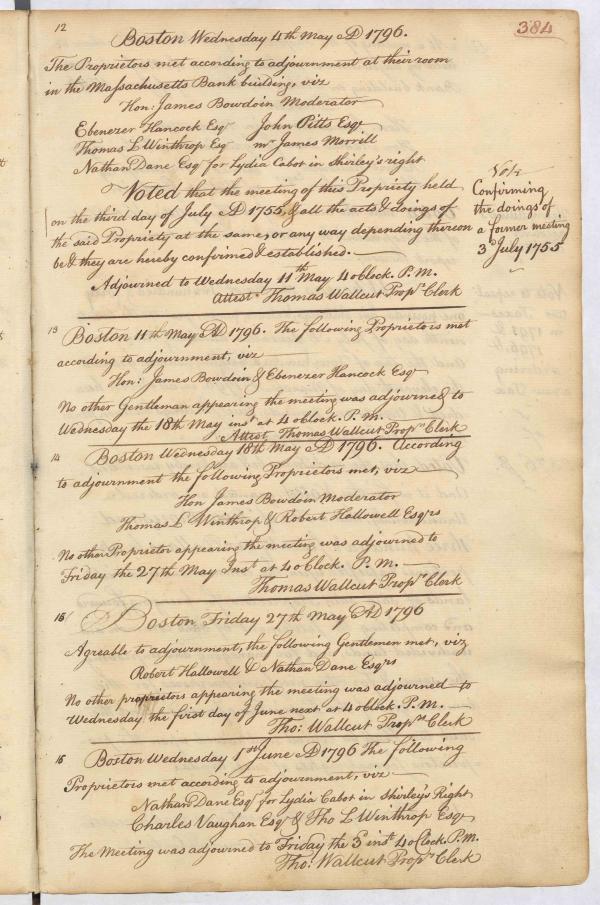 12
384
Boston Wednesday 4th May AD 1796.
The Proprietors met according to adjournment at their room
in the Massachusetts Bank building, viz
Hon: James Bowdoin Moderator
Ebenezer Hancock Esqr John Pitts Esqr
Thomas L Winthrop Esq mr James Morrill
Nathan Dane Esqr for Lydia Cabot in Shirley's right
Voted that the meeting of this Propriety held
on the third day of July AD 1755, & all the acts & doings of
the said Propriety at the same, or any way depending thereon
be & they are hereby confirmed & established.
Vote
Confirming
the doings of
a former meeting
3d July 1755
Adjourned to Wednesday 11th May 4 oClock. P.M.
Attest Thomas Wallcut Propr Clerk
13 Boston 11th May AD 1796. The following Proprietors met
according to adjournment, viz
Hon: James Bowdoin & Ebenezer Hancock Esqr
No other Gentleman appearing the meeting was adjourned to
Wednesday the 18th May inst at 4 oClock. P.M.
Attest, Thomas Wallcut Propr Clerk
14 Boston Wednesday 18th May AD 1796. According
to adjournment the following Proprietors met, viz
Hon James Bowdoin Moderator
Thomas L Winthrop & Robert Hallowell Esqrs
No other Proprietor appearing the meeting was adjourned to
Friday the 27th May Inst at 4 oClock. P.M.
Thomas Wallcut Propr Clerk
15 Boston Friday 27th May AD 1796
Agreable to adjournment, the following Gentlemen met, viz
Robert Hallowell & Nathan Dane Esqrs
No other proprietors appearing the meeting was adjourned to
Wednesday the first day of June next at 4 oClock. P.M.
Tho: Wallcut Propr Clerk
16 Boston Wednesday 1st June AD 1796 the following
Proprietors met according to adjournment, viz
Nathan Dane Esqr for Lydia Cabot in Shirley's Right
Charles Vaughan Esqr & Tho L Winthrop Esqr
The Meeting was adjourned to Friday the 3 inst 4 oClock. P.M.
Tho: Wallcut Propr Clerk